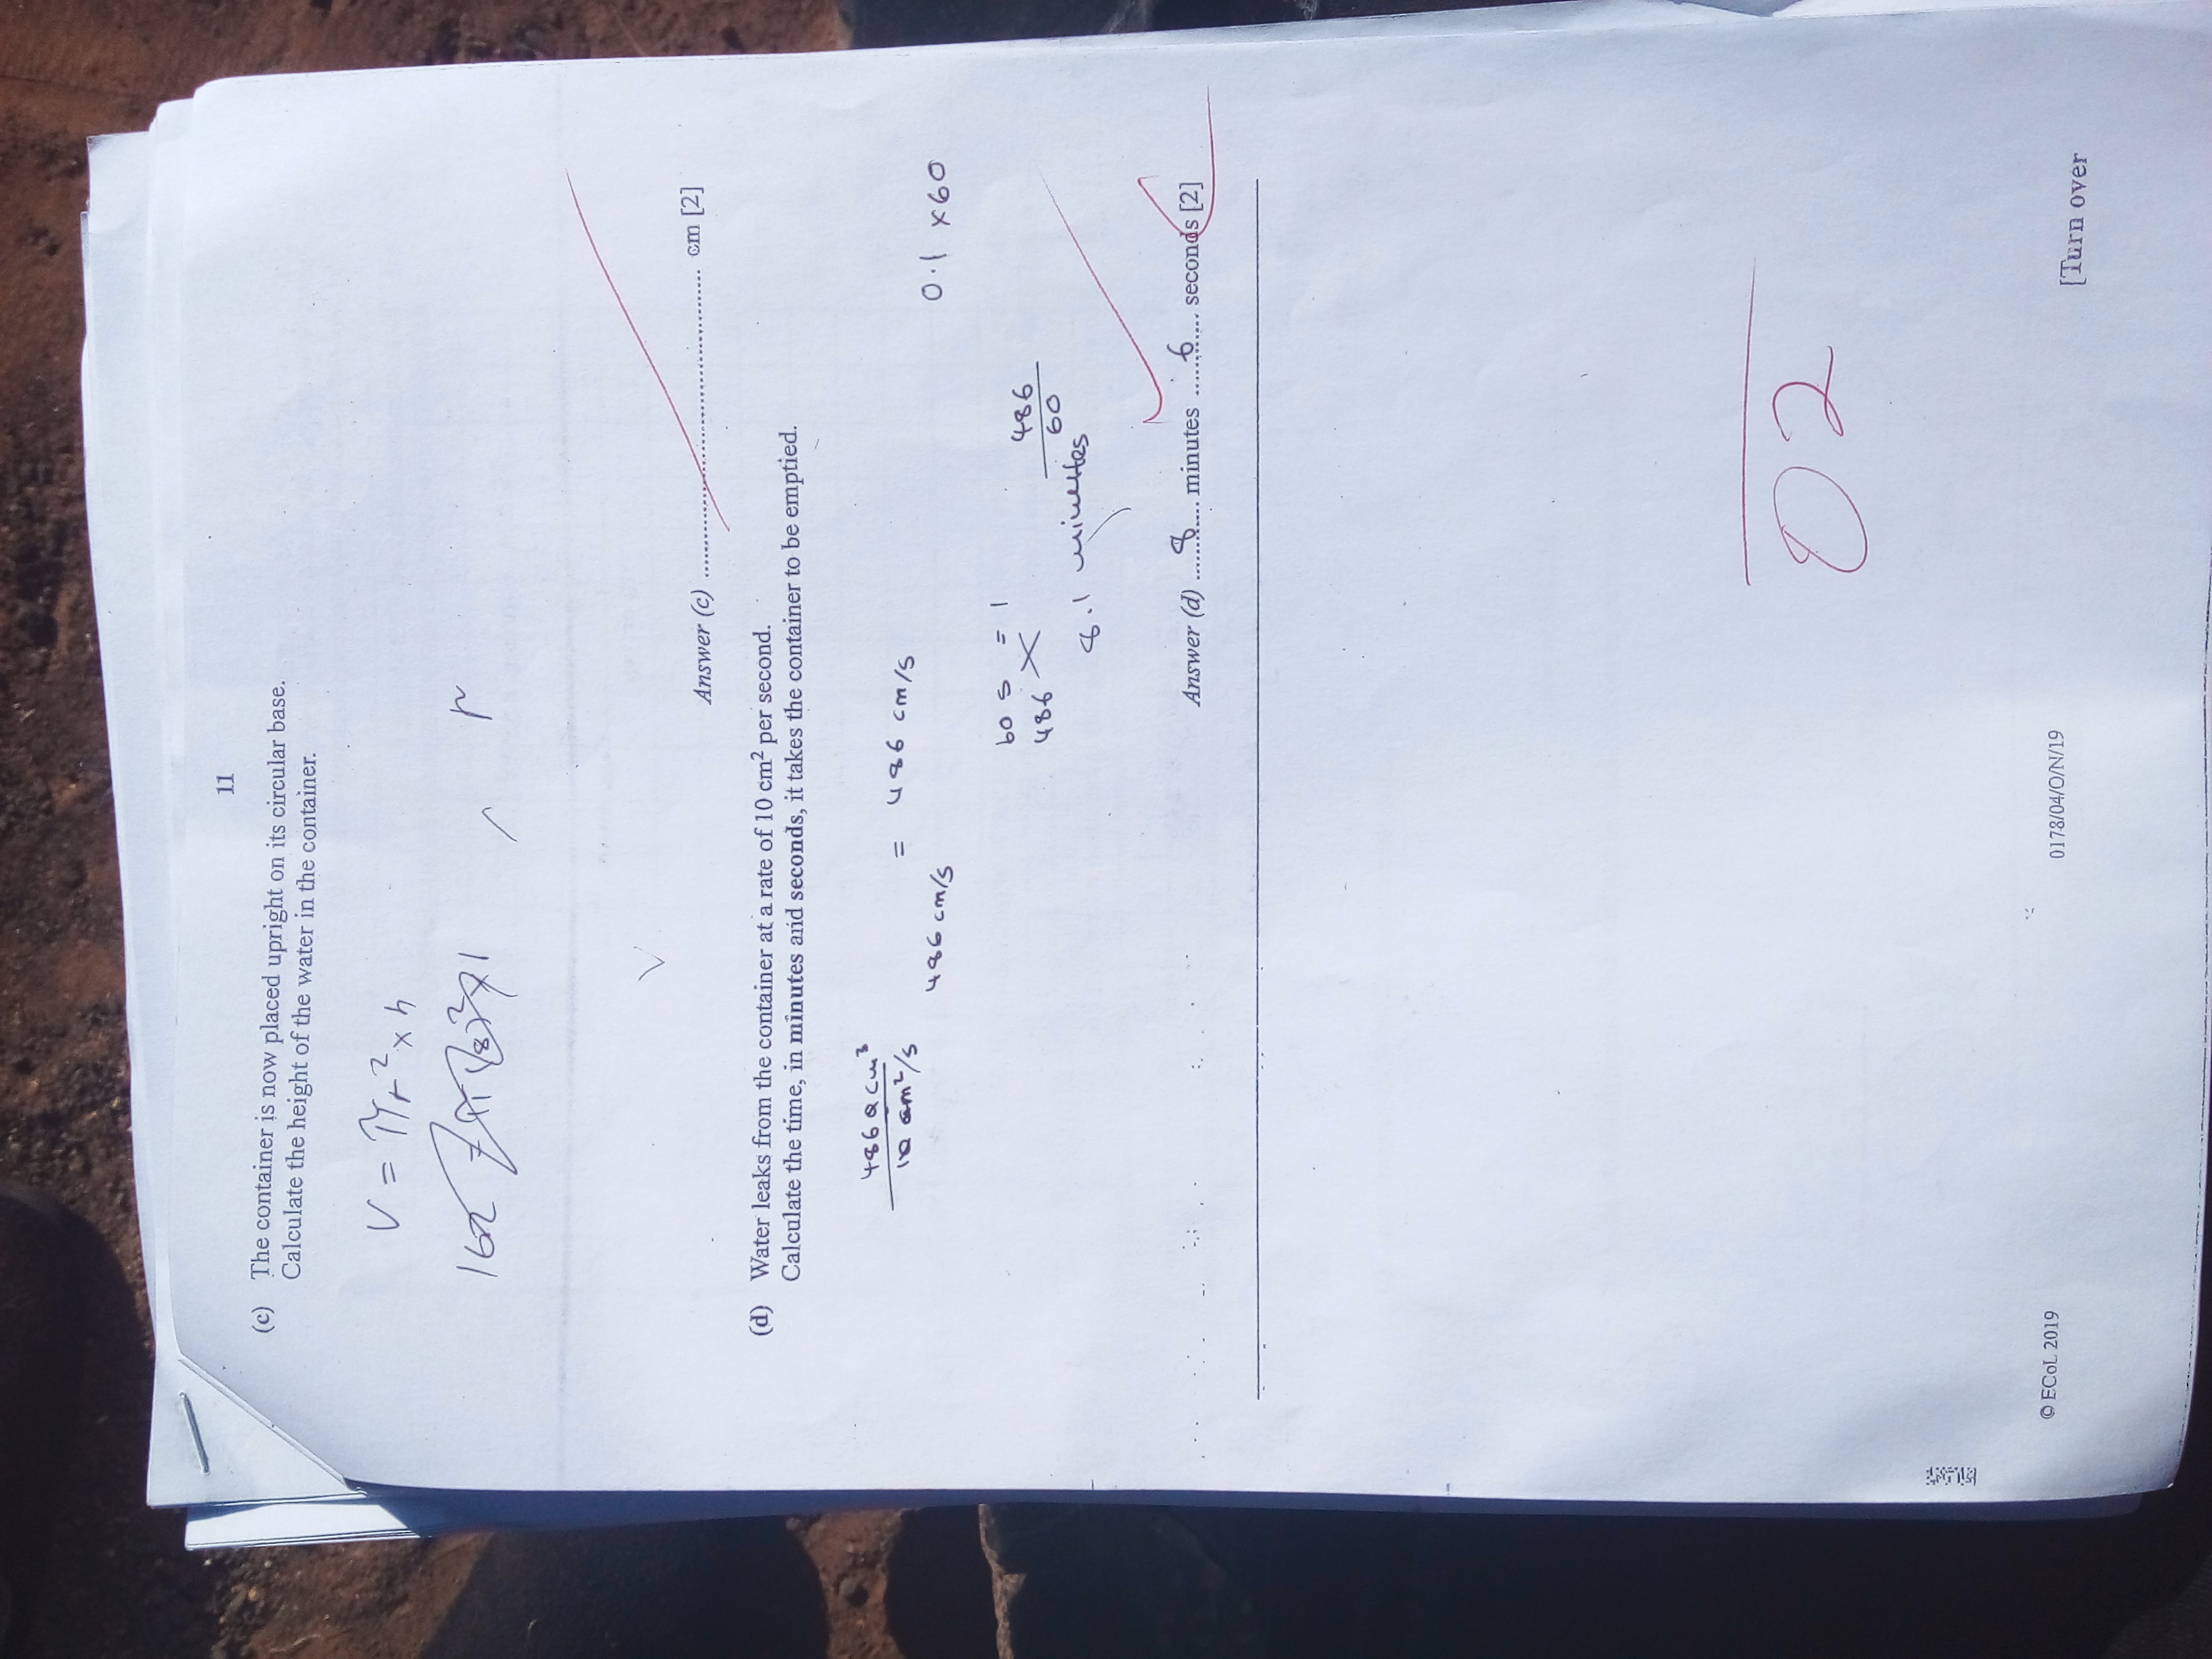 11
(c) The container is now placed upright on its circular base.
Calculate the height of the water in the container.
V = πr² × h
162 = π (8)² × 1
r
Answer (c) ........................................ cm [2]
(d) Water leaks from the container at a rate of 10 cm² per second.
Calculate the time, in minutes and seconds, it takes the container to be emptied.
4860 cm³
10 cm²/s
= 486 cm/s
486 cm/s
0.1 × 60
60 s = 1
486
486
60
8.1 minutes
Answer (d) ....8.... minutes ....6.... seconds [2]
02
© ECoL 2019
0178/04/O/N/19
[Turn over